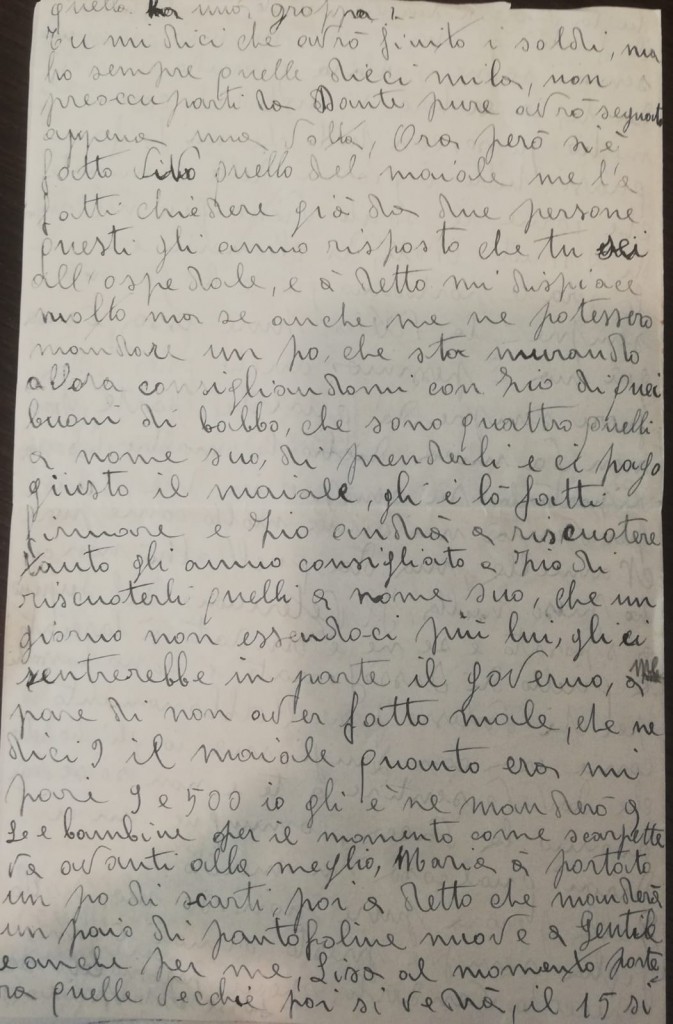 quella ha uno, groppa!.
Tu mi dici che avrò finito i soldi, ma
ho sempre quelle dieci mila, non
preoccuparti da Dante pure avrò segnato
appena una volta, Ora però si è
fatto vivo quello del maiale me l'a
fatti chiedere già da due persone
questi gli anno risposto che tu sei
all'ospedale, e à detto mi dispiace
molto ma se anche me ne potessero
mandare un po, che sta murando
allora consigliandomi con zio di quei
buoni di babbo, che sono quattro quelli
a nome suo, di prenderli e ci pago
giusto il maiale, gli è lò fatti
firmare e zio andrà a riscuotere
tanto gli anno consigliato a zio di
riscuoterli quelli a nome suo, che un
giorno non essendo-ci più lui, gli ci
rentrerebbe in parte il governo, a me
pare di non aver fatto male, che ne
dici? il maiale quanto era mi
pare 9 e 500 io gli è ne manderò 9
Le bambine per il momento come scarpette
va avanti alla meglio, Maria à portato
un po di scarti, poi a detto che manderà
un paio di pantofoline nuove a Gentile
e anche per me, Lisa al momento porte
ra quelle vecchie poi si vedrà, il 15 si